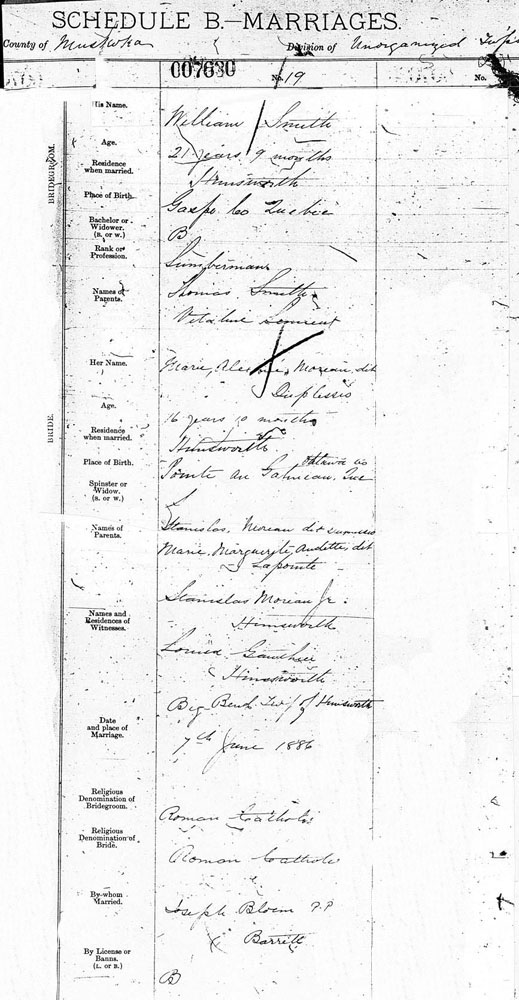 SCHEDULE B.—MARRIAGES.
County of Muskoka Division of Unorganized Twps
007630 No. 19 No.
BRIDEGROOM.
His Name. William Smith
Age. 21 years 9 months
Residence when married. Himsworth
Place of Birth. Gaspe Co Quebec
Bachelor or Widower. (B. or W.) B
Rank or Profession. Lumberman
Names of Parents. Thomas Smith
BRIDE.
Her Name. Marie, Moreau, dit
Duplessis
Age. 16 years 10 months
Residence when married. Himsworth
Place of Birth. Pointe au Gatineau, Que
Ottawa Co
Spinster or Widow. (S. or W.) S
Names of Parents. Stanislas, Moreau dit Duplessis
Marie, Marguerite, Audette, dit
Lapointe
Names and Residences of Witnesses. Stanislas Moreau Jr.
Himsworth
Louisa Gauthier
Himsworth
Date and place of Marriage. Big Bend Twp of Himsworth
7th June 1886
Religious Denomination of Bridegroom. Roman Catholic
Religious Denomination of Bride. Roman Catholic
By whom Married. Joseph Bloem P.P
Barrett
By License or Banns. (L. or B.) B